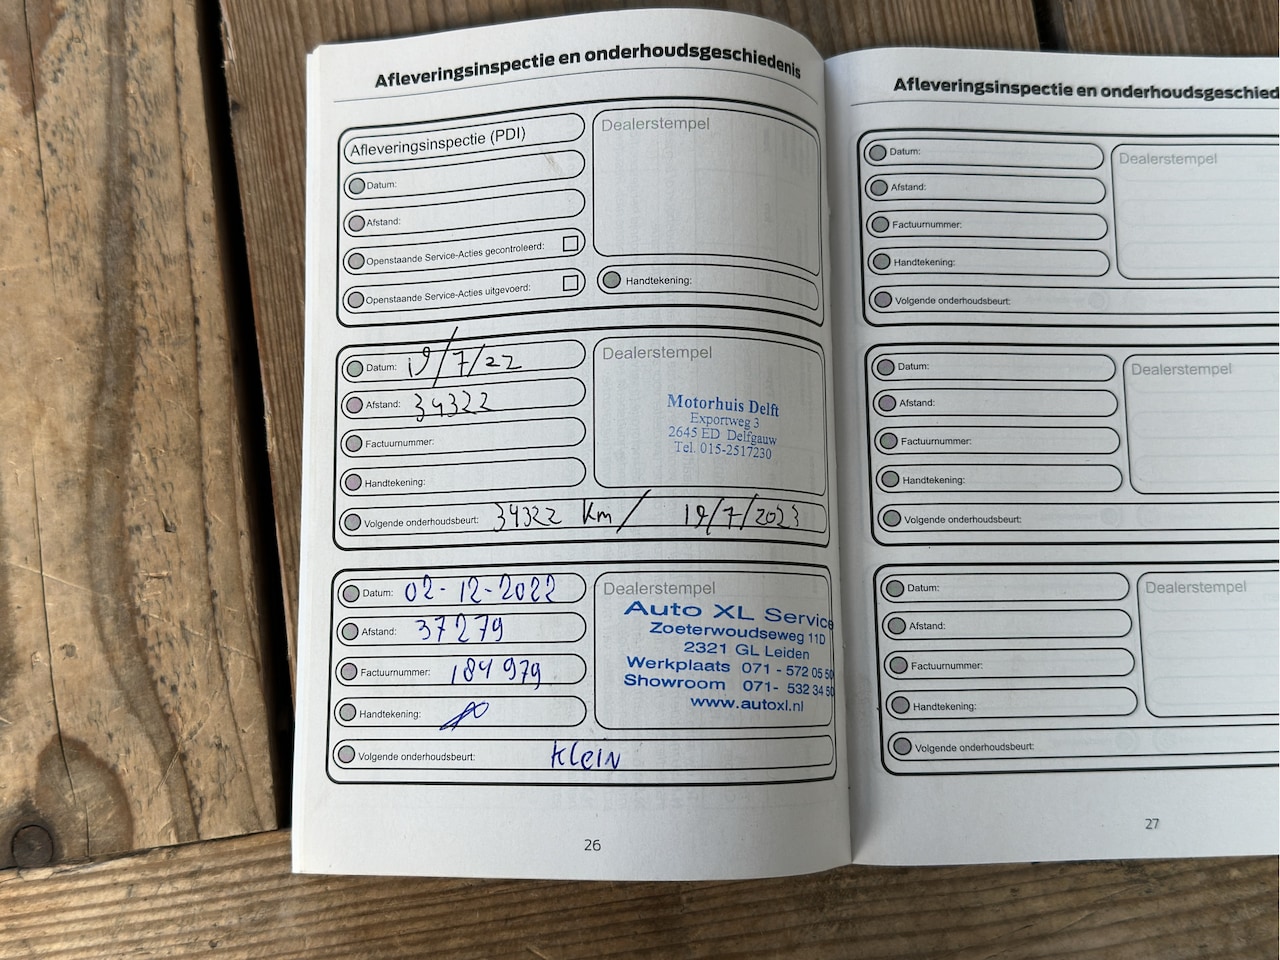 Afleveringsinspectie en onderhoudsgeschiedenis
Afleveringsinspectie (PDI)
Datum:
Afstand:
Openstaande Service-Acties gecontroleerd:
Openstaande Service-Acties uitgevoerd:
Dealerstempel
Handtekening:
Datum: 19/7/22
Afstand: 34322
Factuurnummer:
Handtekening:
Volgende onderhoudsbeurt: 34322 Km/ 19/7/2023
Dealerstempel
Motorhuis Delft
Exportweg 3
2645 ED Delfgauw
Tel. 015-2517230
Datum: 02-12-2022
Afstand: 37279
Factuurnummer: 184979
Handtekening:
Volgende onderhoudsbeurt: Klein
Dealerstempel
Auto XL Service
Zoeterwoudseweg 11D
2321 GL Leiden
Werkplaats 071 - 572 05 50
Showroom 071- 532 34 50
www.autoxl.nl
26
Afleveringsinspectie en onderhoudsgeschied
Datum:
Afstand:
Factuurnummer:
Handtekening:
Volgende onderhoudsbeurt:
Dealerstempel
Datum:
Afstand:
Factuurnummer:
Handtekening:
Volgende onderhoudsbeurt:
Dealerstempel
Datum:
Afstand:
Factuurnummer:
Handtekening:
Volgende onderhoudsbeurt:
Dealerstempel
27